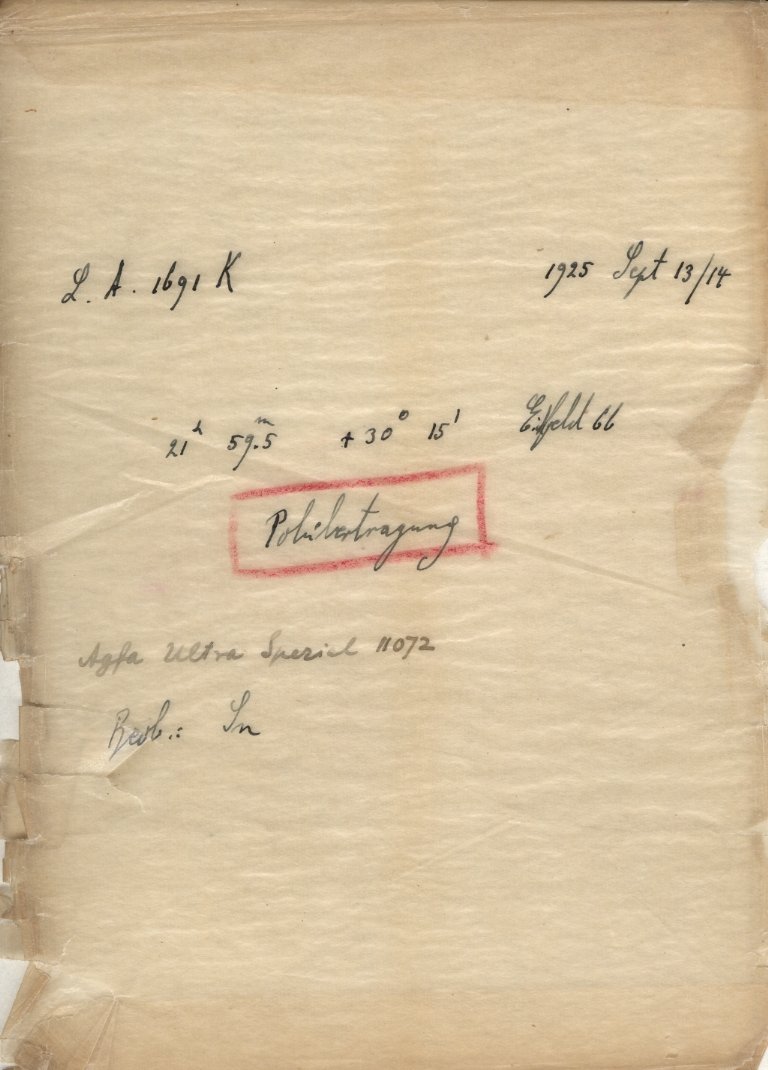 L. A. 1691 K 1925 Sept 13/14
21h 59.5m +30° 15' Eilfeld 66
Polübertragung
Agfa Ultra Spezial 11072
Beob.: Sn